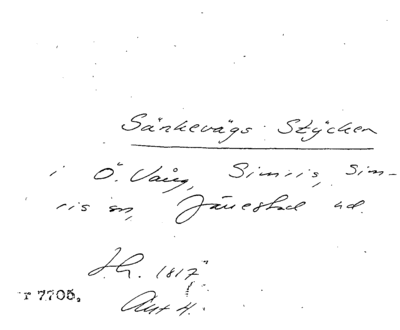 Sänkevägs Stycken
i Ö. Vång, Simris, Sim-
ris sn, Järrestad hd.
Sh. 1817
Akt 4.
r 7705.